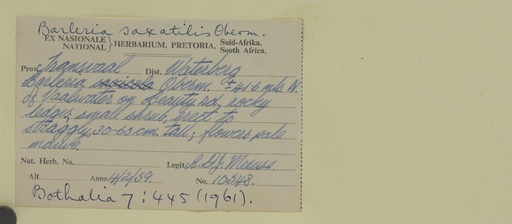 Barleria saxatilis Oberm.
EX NASIONALE NATIONAL } HERBARIUM, PRETORIA. { Suid-Afrika. South Africa.
Prov. Transvaal Dist. Waterberg
Barleria Oberm. ± 41.6 mls. N.
of Vaalwater on Beauty rd, rocky
ledges; small shrub, erect to
straggly, 30-60 cm. tall; flowers pale
mauve.
Nat. Herb. No. Legit. A.D.J. Meeuse.
Alt Anno 14/2/59 No. 10548.
Bothalia 7 : 445 (1961).